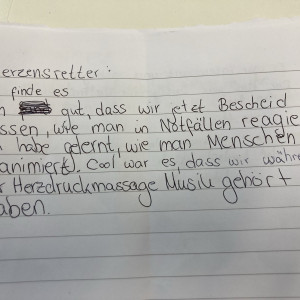 erzensretter:
finde es
gut, dass wir etzt Bescheid
ssen, wie man in Notfällen reagie
habe gelernt, wie man Menschen
animiert. Cool war es, dass wir währe
r Herzdruckmassage Musik gehört
aben.